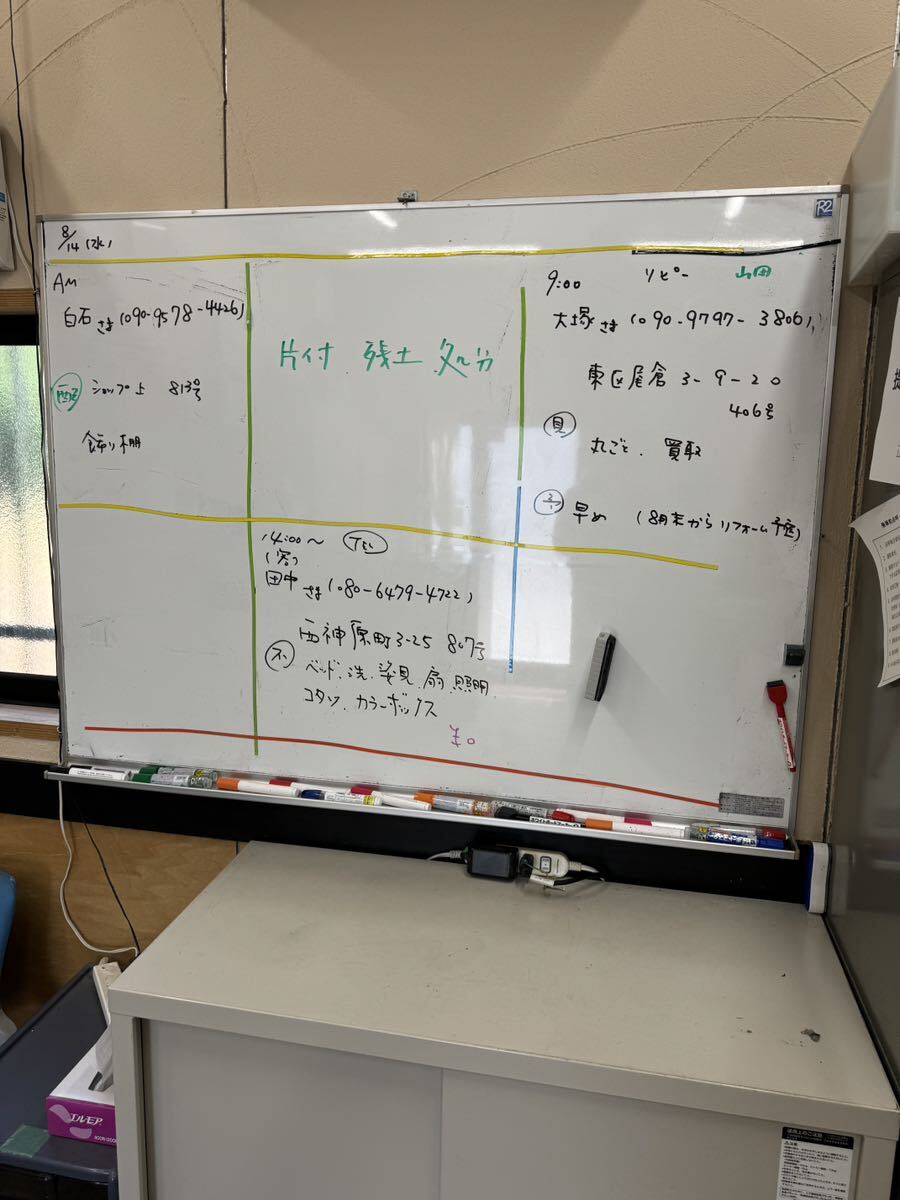 8/14 (水)
AM
白石さま(090-9578-4426)
ショップ上 813号
飾り棚
片付 残土 処分
9:00 リピー 山田
大塚さま(090-9797-3806)
東区尾倉3-9-20
406号
見
丸ごと、買取
早め (8月末からリフォーム予定)
14:00～ TEL
(客)
田中さま(080-6479-4722)
西神原町3-25 807号
不 ベッド、洗、姿見、扇、照明
コタツ、カラーボックス
¥0
エルモア